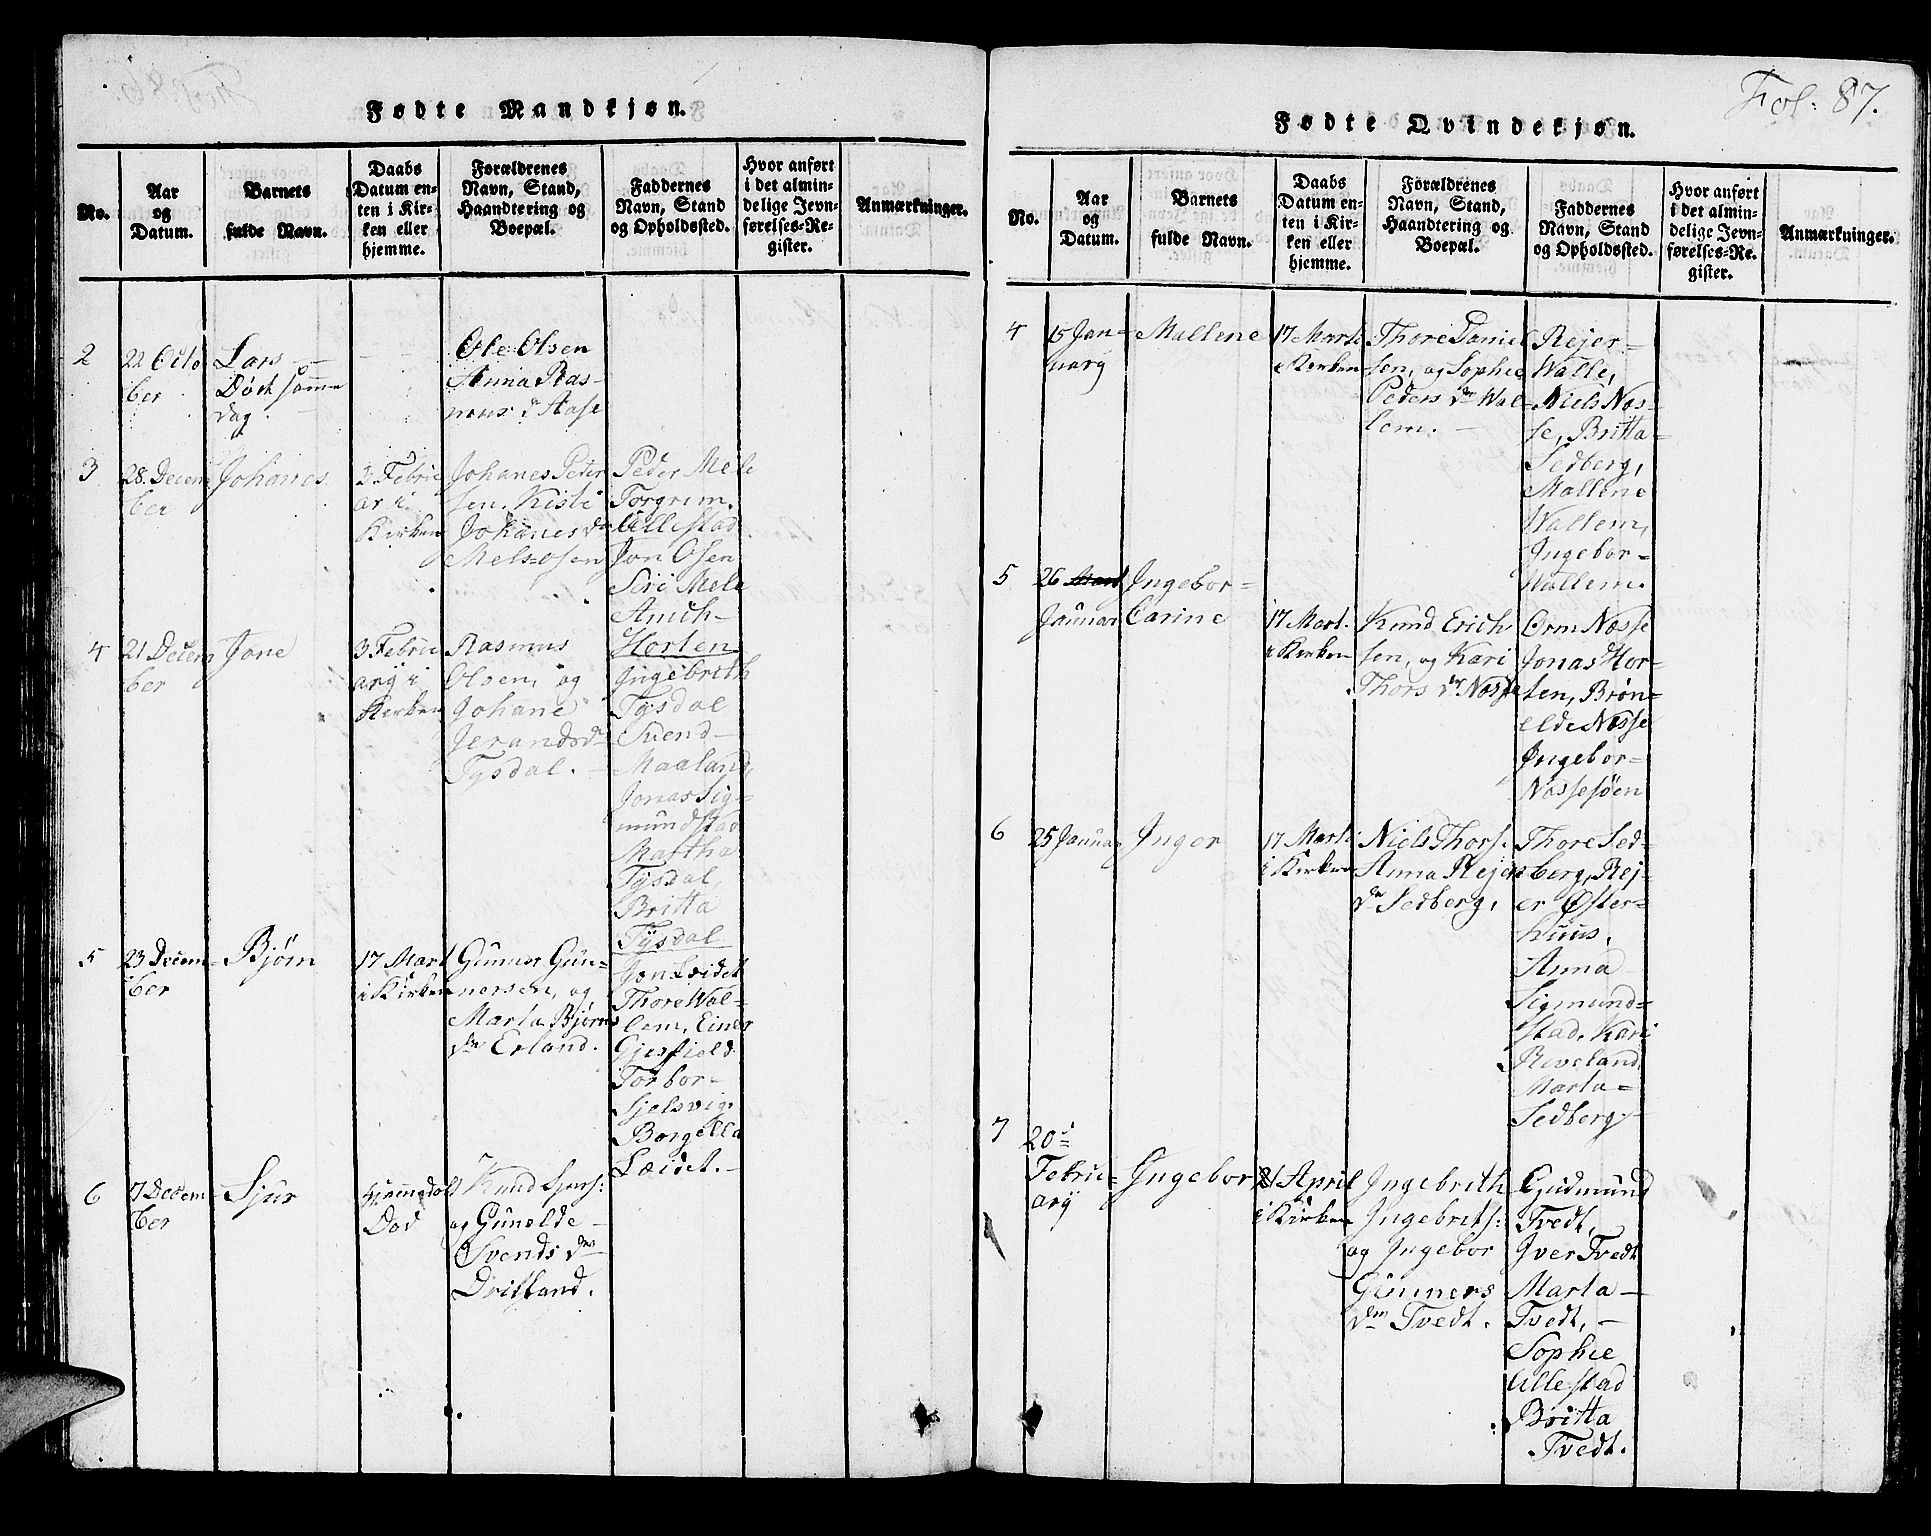 Fødte Mandkjøn.
No.
Aar
og
Datum.
Barnets
fulde Navn.
Daabs
Datum en-
ten i Kir-
ken eller
hjemme.
Forældrenes
Navn, Stand,
Haandtering og
Boepæl.
Faddernes
Navn, Stand
og Opholdssted.
Hvor anført
i det almin-
delige Jevn-
førelses-Re-
gister.
Anmærkninger.
2
22 Octo
ber
Lars
Død samme
dag.
Ole Olsen
Anna Ras-
mus dr Aase
3
28. Decem
ber
Johanes
3 Febru
ar i
Kirken
Johanes Peder
sen, Kisti
Johanes dr
Mels-osen
Peder Mele
Torgrim
Ullestad
Jon Osen
Seri Mele
Anich-
Horten
4
21 Decem
ber
Jone
3 Febru
ary i
Kirken
Rasmus
Olsen, og
Johane
Jerands dr
Tysdal.
Ingebrith
Tysdal
Svend-
Maaland,
Jonas Sig-
mundstad
Martha
Tysdal,
Britta
Tysdal
5
23 Decem-
ber
Bjørn
17 Mart
i Kirken
Gunner Gun-
nersen, og
Marta Bjørns
dr Erland.
Jon Leidet
Thore Wal-
lem, Einer
Gjesfield
Torbor-
Sjelsvig
Borgella
Leidet.
6
7 Decem
ber
Sjur
Hjemmedøbt
Død
Knud Sjurs:
og Gunelde-
Svends dr
Dritland.
Fol: 87.
Fødte Qvindekjøn.
No.
Aar
og
Datum.
Barnets
fulde Navn.
Daabs
Datum en-
ten i Kir-
ken eller
hjemme.
Forældrenes
Navn, Stand,
Haandtering og
Boepæl.
Faddernes
Navn, Stand
og Opholdssted.
Hvor anført
i det almin-
delige Jevn-
førelses-Re-
gister.
Anmærkninger.
4
15 Jan-
uary
Mallene
17 Mart i
Kirken
Thore Daniel
sen, og Sophie
Peders dr Wal-
lem.
Rejer-
Walle,
Niels Næs-
se, Britta-
Sedberg,
Mallene
Wallem,
Ingebor-
Wallem.
5
26 Mart
Januar
Ingebor-
Carine
17 Mart.
i Kirken
Knud Erich
sen, og Kari
Thors dr Næsse
Orm Næsse
Jonas Hor-
ten, Brøn-
elde Næsse
Ingebor-
Næssesøen
6
25 Janua
Inger
17 Mart
i Kirken
Niels Thors.
Anna Rejers
dr Sedberg,
Thore Sed-
berg, Rej-
er Øster-
huus,
Anna
Sigmund-
stad, Kari
Reveland,
Marta-
Sedberg
7
20
Febru-
ary
Ingebor
21 April
i Kirken
Ingebrith
Ingebrits:
og Ingebor
Gunners
dr Tvedt.
Gudmund
Tvedt,
Iver Tvedt
Marta-
Tvedt,
Sophie
Ullestad
Britta
Tvedt.